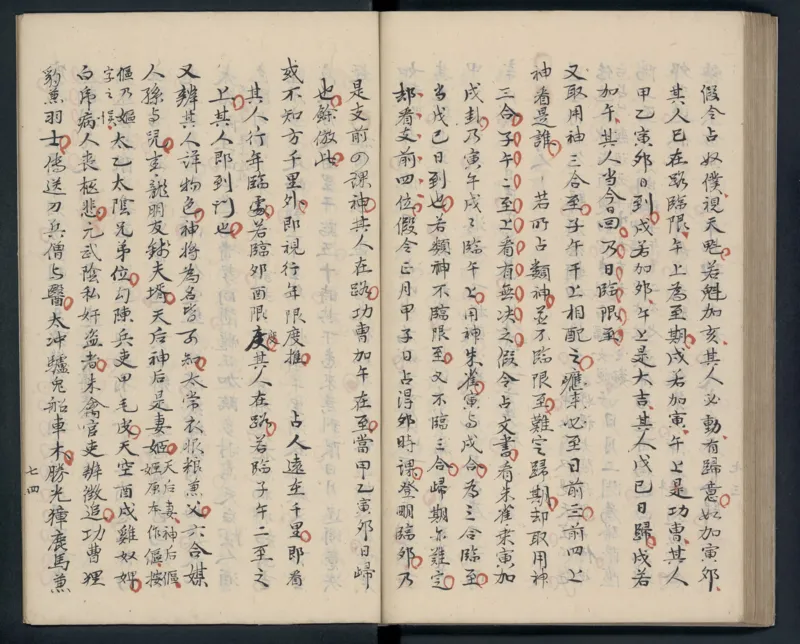 假令占奴僕視天魁若魁加亥其人必動有歸意如加寅夘
其人已在路臨限午上為至期戌若加寅午上是功曹其人
甲乙寅夘日到戌若加夘午上是大吉其人戊己日歸戌若
加午其人當今日回乃日臨限至
又取用神三合至子午干上相配之應来必至日前三前四上
神看是誰 若所占類神並不臨限至難定歸期却取用神
三合子午二至上看有無决之假令占文書看朱雀乗寅加
戌卦乃寅午戌戌臨午上用神朱雀寅与戌合為三合臨至
當戊己日到也若類神不臨限至又不臨三合歸期尔難定
却看支前四位假令正月甲子日占得夘時課登明臨夘乃
是支前の課神其人在路功曹加午在至當甲乙寅夘日歸
也餘倣此
或不知方千里外即視行年限度推 占人遠在千里即看
其人行年臨處若臨夘酉限度其人在路若臨子午二至之
上其人即到门也
又辨其人詳物色神将為名皆可知太常衣服粮兼父六合媒
人孫与兒青龍朋友錢夫壻天后神后是妻姬天后妻神后傴姬原本作傴按
傴乃嫗字之悮太乙太陰兄弟位勾陳兵吏甲毛戌天空酉戌雞奴婢
白虎病人丧極悲元武陰私奸盗者朱禽官吏辨徴追功曹狸
豹兼羽士傳送刀兵僧与醫太冲驢兔船車木勝光獐鹿馬兼
七四